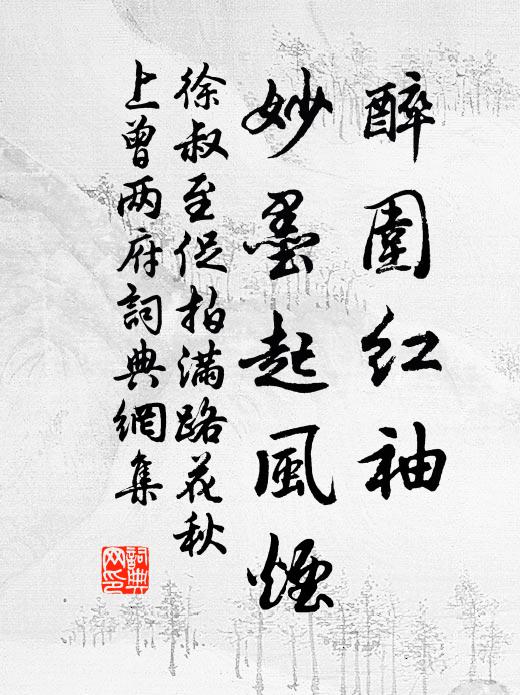 醉圍紅袖
妙墨起風煙
徐叔至促拍滿路花秋
上曾两府詞典網集
詞典网印